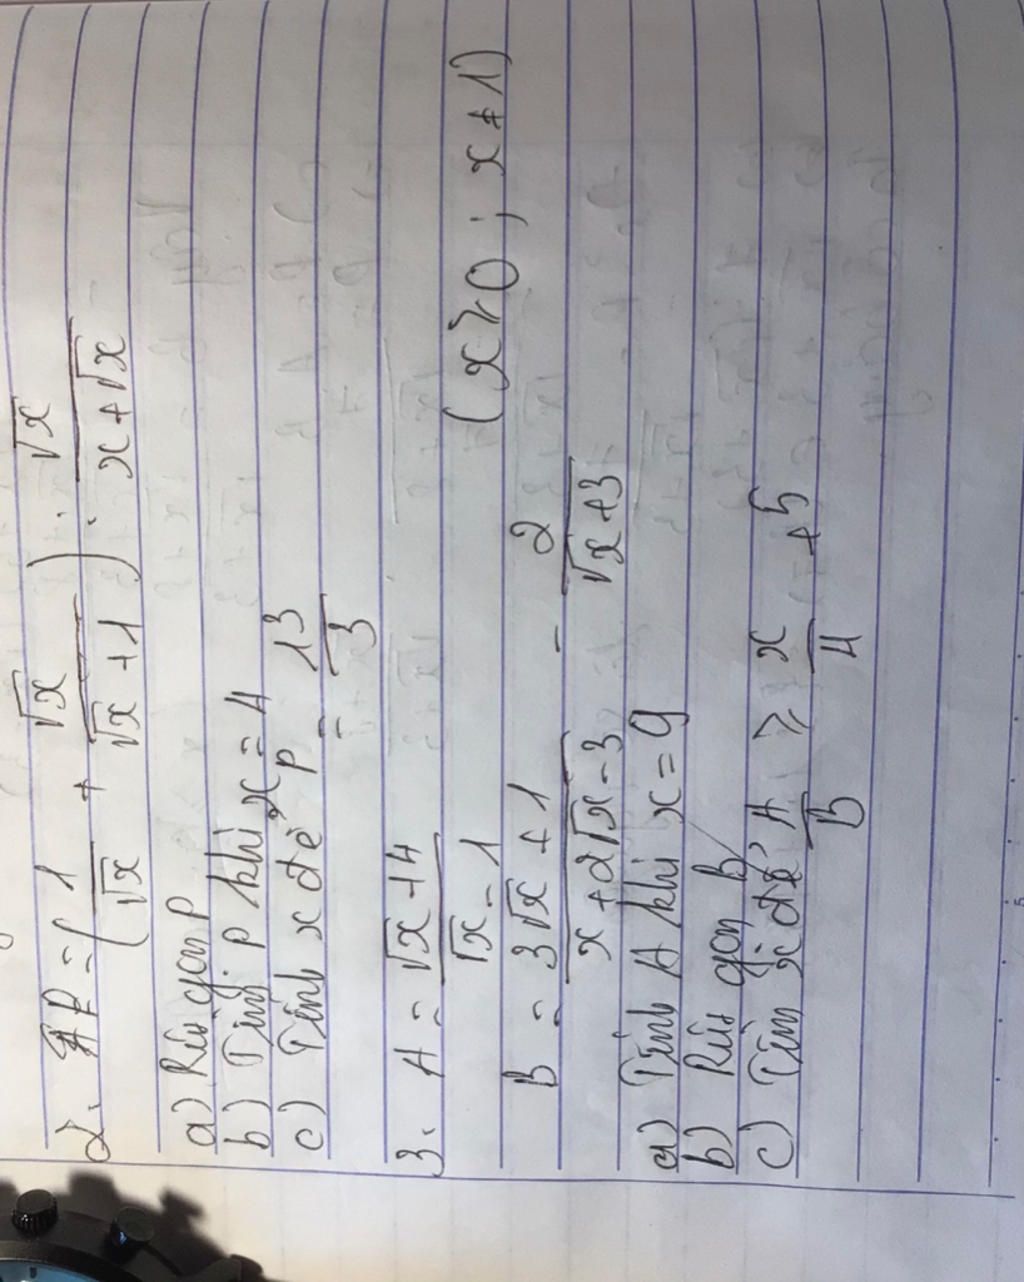 2. P = ( 1/√x + √x/(√x + 1) ) : √x/(x + √x)
a) Rút gọn P
b) Tính P khi x = 4
c) Tính x để P = 13/3
3. A = (√x + 4)/(√x - 1)
(x ≥ 0 ; x ≠ 1)
B = (3√x + 1)/(x + 2√x - 3) - 2/(√x + 3)
a) Tính A khi x = 9
b) Rút gọn B
c) Tìm x để A/B ≥ x/4 + 5